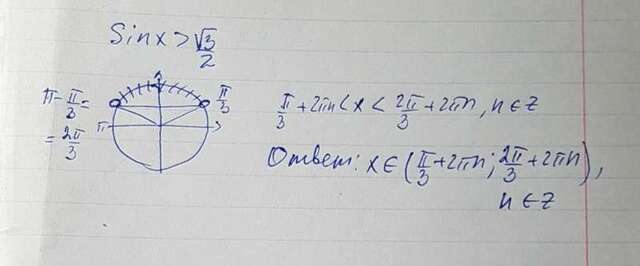 Sinx > √3/2
π - π/3 =
= 2π/3
π
π/3
π/3 + 2πn < x < 2π/3 + 2πn, n ∈ z
Ответ: x ∈ (π/3 + 2πn; 2π/3 + 2πn),
n ∈ z